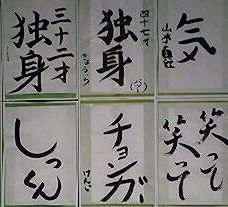 三十二才
独身
四十七才
独身
気
しっくん
チョンガー
けんご
笑って
笑って